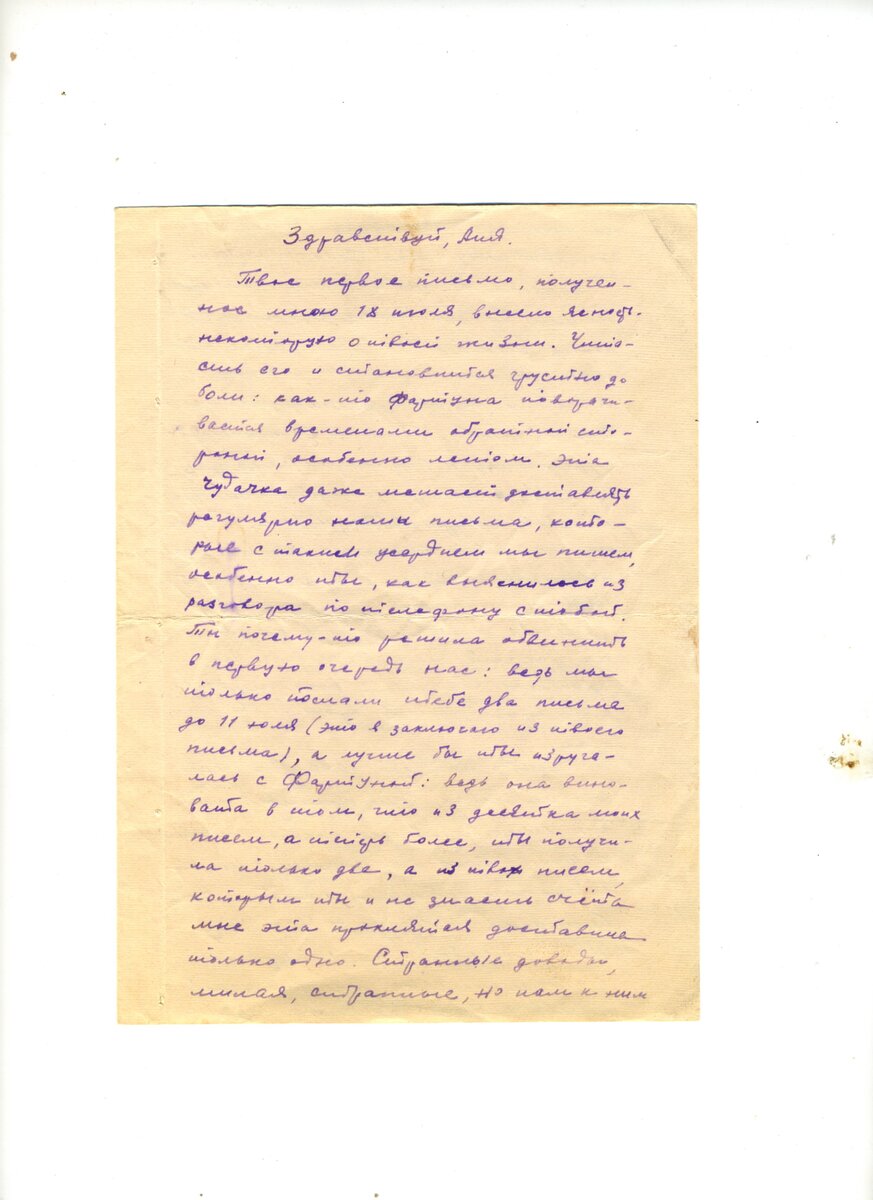 Здравствуй, Аня.
Твое первое письмо, получен-
ное мною 18 июля, внесло ясность
некоторую о твоей жизни. Чита-
ешь его и становится грустно до
боли: как-то Фартуна поворачи-
вается временами обратной сто-
роной, особенно летом. Эта
чудачка даже мешает доставлять
регулярно наши письма, кото-
рые с таким усердием мы пишем,
особенно ты, как выяснилось из
разговора по телефону с тобой.
Ты почему-то решила обвинить
в первую очередь нас: ведь мы
только послали тебе два письма
до 11 юля (это я заключаю из твоего
письма), а лучше бы ты изруга-
лась с Фартуной: ведь она вино-
вата в том, что из десятка моих
писем, а теперь более, ты получи-
ла только две, а из твоих писем,
которым ты и не знаешь счёта
мне эта проклятая доставила
только одно. Странные доводы,
милая, странные, но нам к ним